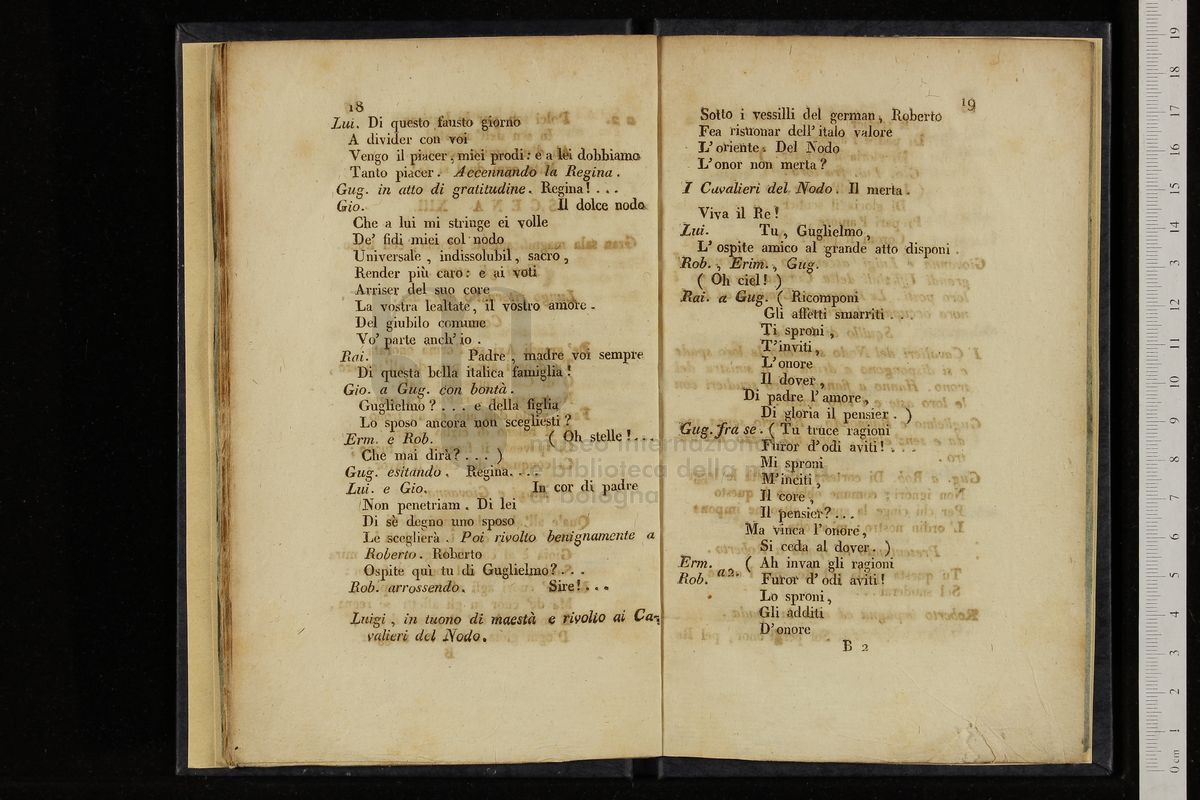 18
Lui. Di questo fausto giorno
A divider con voi
Vengo il piacer, miei prodi: e a lei dobbiamo
Tanto piacer. Accennando la Regina.
Gug. in atto di gratitudine. Regina! . . .
Gio. Il dolce nodo
Che a lui mi stringe ei volle
De' fidi miei col nodo
Universale, indissolubil, sacro,
Render più caro: e ai voti
Arriser del suo core
La vostra lealtate, il vostro amore.
Del giubilo comune
Vo' parte anch' io.
Rai. Padre, madre voi sempre
Di questa bella italica famiglia!
Gio. a Gug. con bontà.
Guglielmo? . . . e della figlia
Lo sposo ancora non scegliesti?
Erm. e Rob. ( Oh stelle! . . .
Che mai dirà? . . . )
Gug. esitando. Regina. . . .
Lui. e Gio. In cor di padre
Non penetriam. Di lei
Di sè degno uno sposo
Le sceglierà. Poi rivolto benignamente a
Roberto. Roberto
Ospite quì tu di Guglielmo? . . .
Rob. arrossendo. Sire! . . .
Luigi, in tuono di maestà e rivolto ai Ca-
valieri del Nodo.
19
Sotto i vessilli del german, Roberto
Fea risuonar dell' italo valore
L' oriente. Del Nodo
L' onor non merta?
I Cavalieri del Nodo. Il merta.
Viva il Re!
Lui. Tu, Guglielmo,
L' ospite amico al grande atto disponi.
Rob., Erim., Gug.
( Oh ciel! )
Rai. a Gug. ( Ricomponi
Gli affetti smarriti . . .
Ti sproni,
T'inviti,
L'onore
Il dover,
Di padre l' amore,
Di gloria il pensier. )
Gug. fra se. ( Tu truce ragioni
Furor d'odi aviti! . . .
Mi sproni
M'inciti,
Il core,
Il pensier? . . .
Ma vinca l'onore,
Si ceda al dover. )
Erm. Rob. a 2. ( Ah invan gli ragioni
Furor d' odi aviti!
Lo sproni,
Gli additi
D'onore
B 2
museo internazionale
e biblioteca della musica
di bologna
0 cm 1 2 3 4 5 6 7 8 9 10 11 12 13 14 15 16 17 18 19